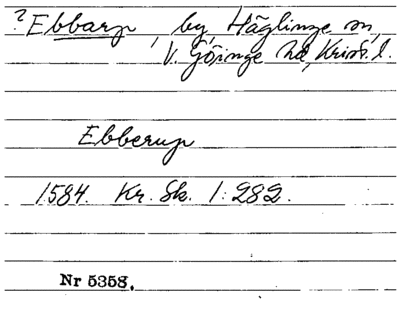 ? Ebbarp, by, Häglinge sn,
V. Göinge hd, Krist. l.
Ebberup
1584. Kr. Sk. 1:282.
Nr 5358.